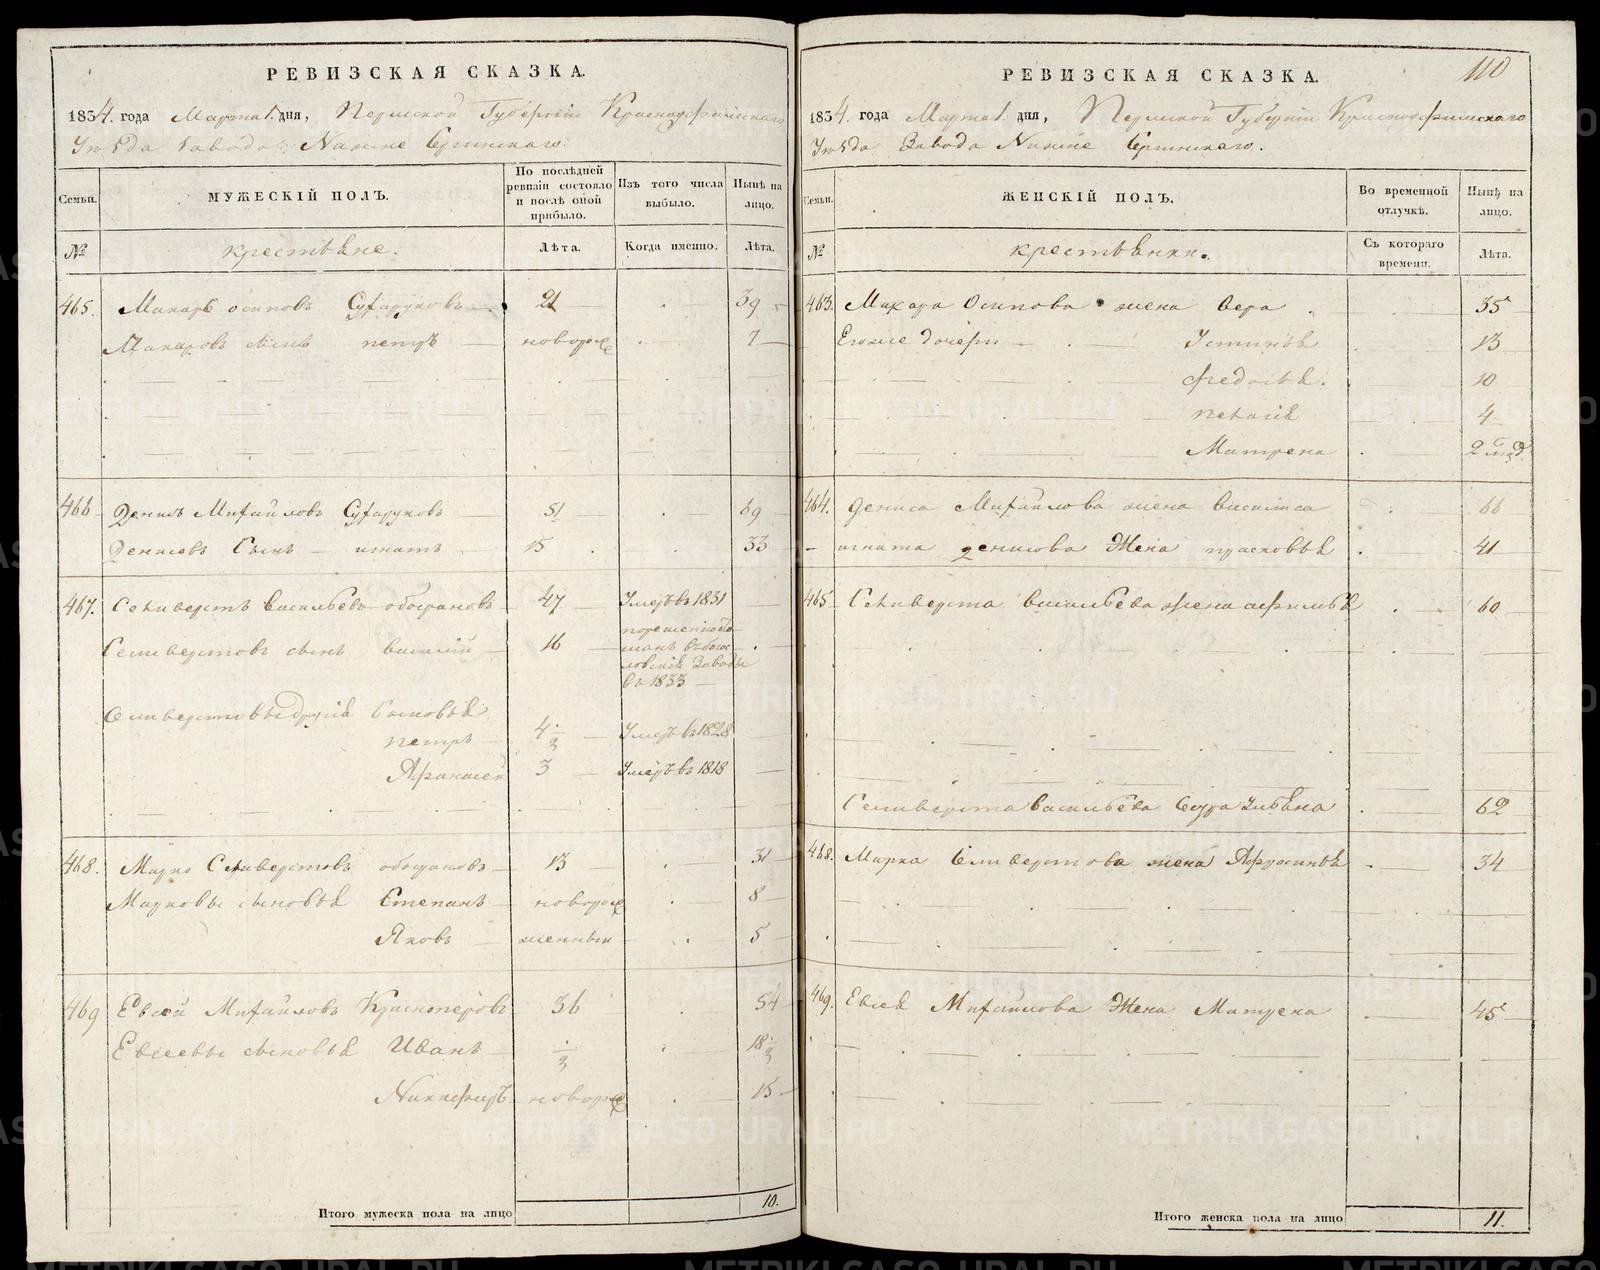 РЕВИЗСКАЯ СКАЗКА.
1834. года Марта 1. дня, Пермской Губернiи Красноуфимскаго
Уѣзда Завода Нижне Сергинскаго.
Семьи.
МУЖЕСКIЙ ПОЛЪ.
По послѣдней ревизiи состояло и послѣ оной прибыло.
Изъ того числа выбыло.
Нынѣ на лицо.
№
крестьяне.
Лѣта.
Когда именно.
Лѣта.
465. Макаръ осиповъ Сухаруковъ 21 39
Макаровъ сынъ петръ новорож 7
466 Денисъ Михайловъ Сухаруковъ 51 69
Денисовъ Сынъ игнатъ 15 33
467. Селиверстъ Васильевъ 47 Умеръ въ 1831
Селиверстовъ сынъ василiй 16
въ 1833
Селиверстовы другiя Сыновья
петръ 4 1/2 Умеръ въ 1828
Афанасей 3 Умеръ въ 1818
468. Марко Селиверстовъ 13 31
Марковы сыновья Степанъ новорож 8
Яковъ женныи 5
469 Евсей Михайловъ Красноперовъ 36 54
Евсеевы сыновья Иванъ 1/2 18 1/2
Никифоръ новорож 15
Итого мужеска пола на лицо 10.
110
РЕВИЗСКАЯ СКАЗКА.
1834. года Марта 1. дня, Пермской Губернiи Красноуфимскаго
Уѣзда Завода Нижне Сергинскаго.
Семьи.
ЖЕНСКIЙ ПОЛЪ.
Во временной отлучкѣ.
Нынѣ на лицо.
№
крестьянки.
Съ котораго времени.
Лѣта.
463. Макара Осипова жена Вера 35
Егоже дочери Устинья 13
Федосья. 10
пелагiя 4
Матрена 2 мѣд.
464. Дениса Михайлова жена Василиса 66
игната денисова Жена прасковья 41
465. Селиверста васильева жена афимья 60
Селиверста васильева Сестра Ульяна 62
468. Марка Селиверстова жена Афросинья 34
469. Евсея Михайлова Жена Матрена 45
Итого женска пола на лицо 11.
METRIKI.GASO-URAL.RU